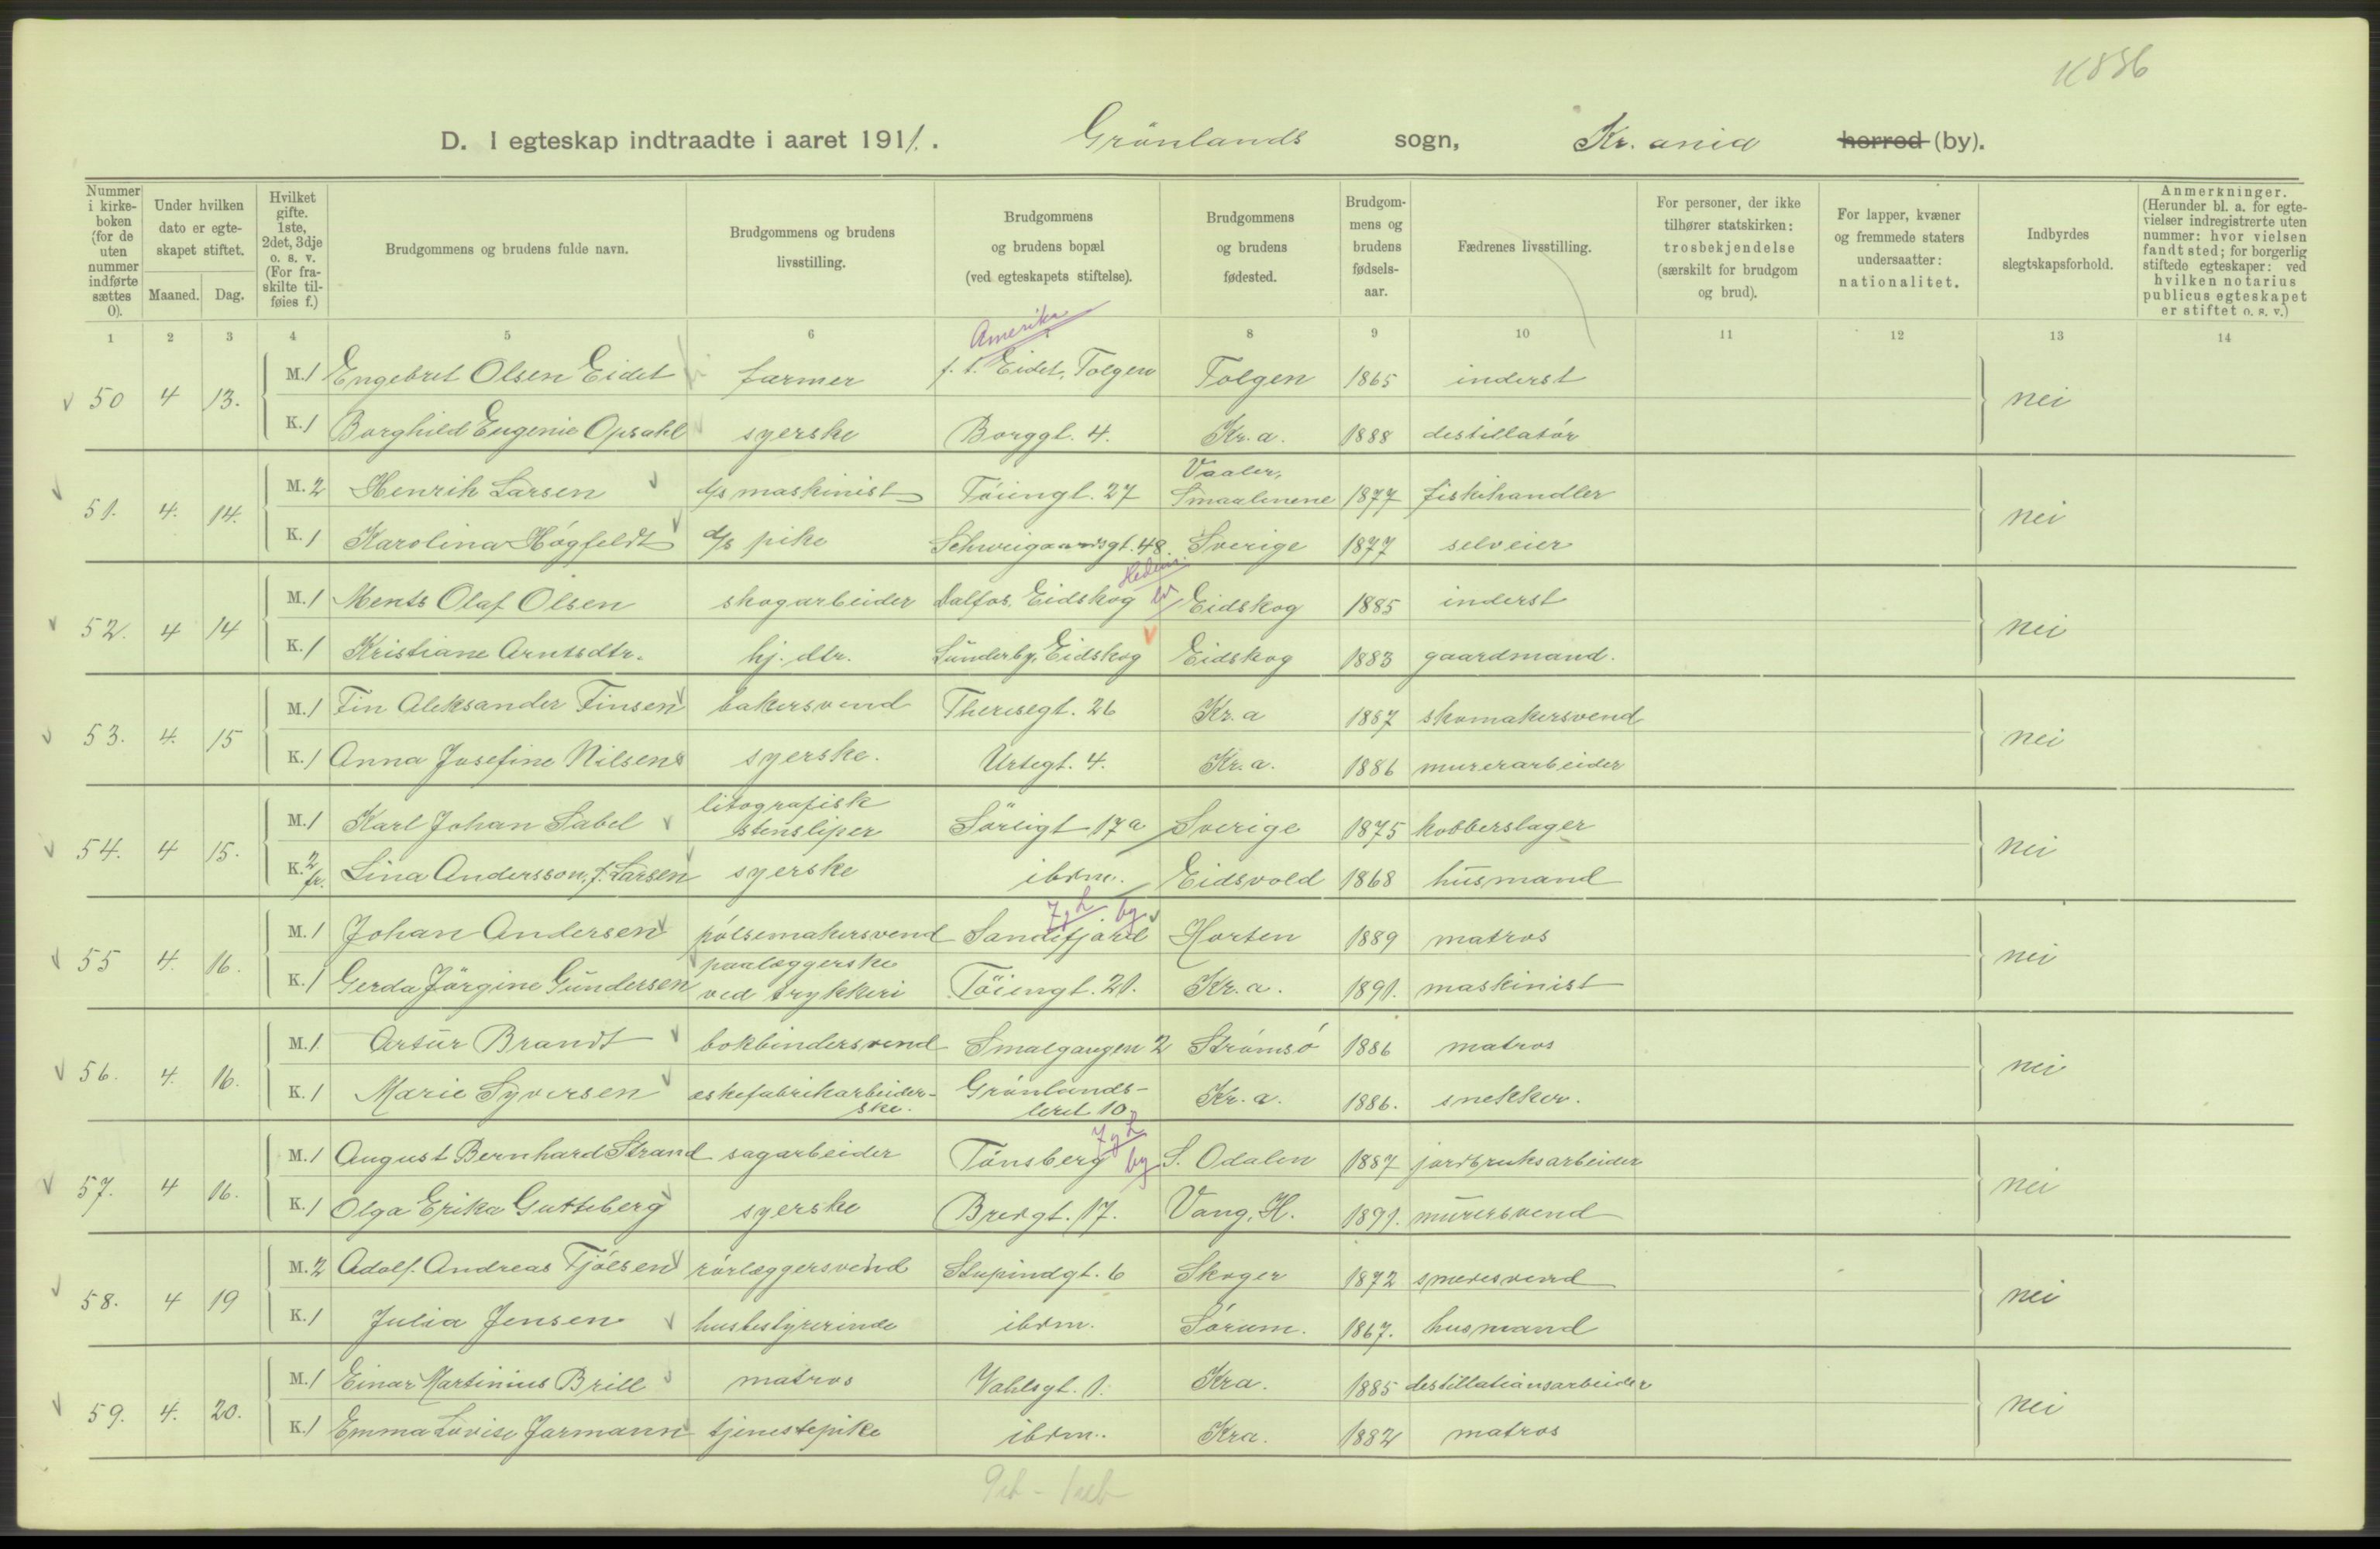 11886
D. I egteskap indtraadte i aaret 1911. Grönlands sogn, Kr.ania herred (by).
Nummer i kirkeboken (for de uten nummer indførte sættes 0).
Under hvilken dato er egteskapet stiftet.
Maaned. Dag.
Hvilket gifte. 1ste, 2det, 3dje o. s. v. (For fraskilte tilføies f.)
Brudgommens og brudens fulde navn.
Brudgommens og brudens livsstilling.
Brudgommens og brudens bopæl (ved egteskapets stiftelse).
Brudgommens og brudens fødested.
Brudgommens og brudens fødselsaar.
Fædrenes livsstilling.
For personer, der ikke tilhører statskirken: trosbekjendelse (særskilt for brudgom og brud).
For lapper, kvæner og fremmede staters undersaatter: nationalitet.
Indbyrdes slegtskapsforhold.
Anmerkninger. (Herunder bl. a. for egtevielser indregistrerte uten nummer: hvor vielsen fandt sted; for borgerlig stiftede egteskaper: ved hvilken notarius publicus egteskapet er stiftet o. s. v.)
1 2 3 4 5 6 8 9 10 11 12 13 14
Amerika
50 4 13. M. 1 Engebret Olsen Eidet farmer f. t. Eidet, Tolgen Tolgen 1865 inderst nei
K. 1 Borghild Eugenie Opsahl syerske Borggt. 4. Kr.a. 1888 destillatör
51. 4. 14. M. 2 Henrik Larsen d/s maskinist Töiengt. 27 Vaaler, Smaalenene 1877 fiskehandler nei
K. 1 Karolina Högfeldt d/s pike Schweigaardsgt. 48. Sverige 1877 selveier
Hedem
52. 4 14 M. 1 Ments Olaf Olsen skogarbeider Dalfos, Eidskog Eidskog 1885 inderst nei
K. 1 Kristiane Arntsdtr. hj. dtr. Sünderby, Eidskog Eidskog 1883 gaardmand.
53. 4. 15 M. 1 Fin Aleksander Finsen bakersvend Theresegt. 26 Kr.a 1887 skomakersvend nei
K. 1 Anna Josefine Nilsen syerske. Urtegt. 4. Kr.a. 1886 murerarbeider
54. 4 15. M. 1 Karl Johan Sabel litografisk stensliper Sörligt 17a Sverige 1875 kobberslager nei
K. 2 fr. Lina Andersson, f. Larsen syerske ibdm. Eidsvold 1868 husmand
by
55 4. 16. M. 1 Johan Andersen pölsemakersvend Sandefjord Horten 1889 matros nei
K. 1 Gerda Jörgine Gundersen paalæggerske ved trykkeri Töiengt. 21. Kr.a. 1891. maskinist
56. 4. 16. M. 1 Artur Brandt bokbindersvend Smalgangen 2 Strömsö 1886 matros nei
K. 1 Marie Syversen eskefabrikarbeiderske. Grönlandsleret 10. Kr.a. 1886. snekker.
by
57. 4 16. M. 1 August Bernhard Strand sagarbeider Tönsberg S. Odalen 1887 jordbruksarbeider nei
K. 1 Olga Erika Gutteberg syerske Bredgt. 17. Vang, H. 1891. murersvend
58. 4 19 M. 2 Adolf Andreas Tjölsen rörlæggersvend Stupindgt. 6 Skoger 1872 smedesvend nei
K. 1 Julia Jensen husbestyrerinde ibdm. Sörum. 1867. husmand
59. 4. 20. M. 1 Einar Martinius Brill matros Vahlsgt. 1. Kra. 1885 destillationsarbeider nei
K. 1 Emma Lovise Jarmann tjenestepike ibdm. Kra. 1882 matros